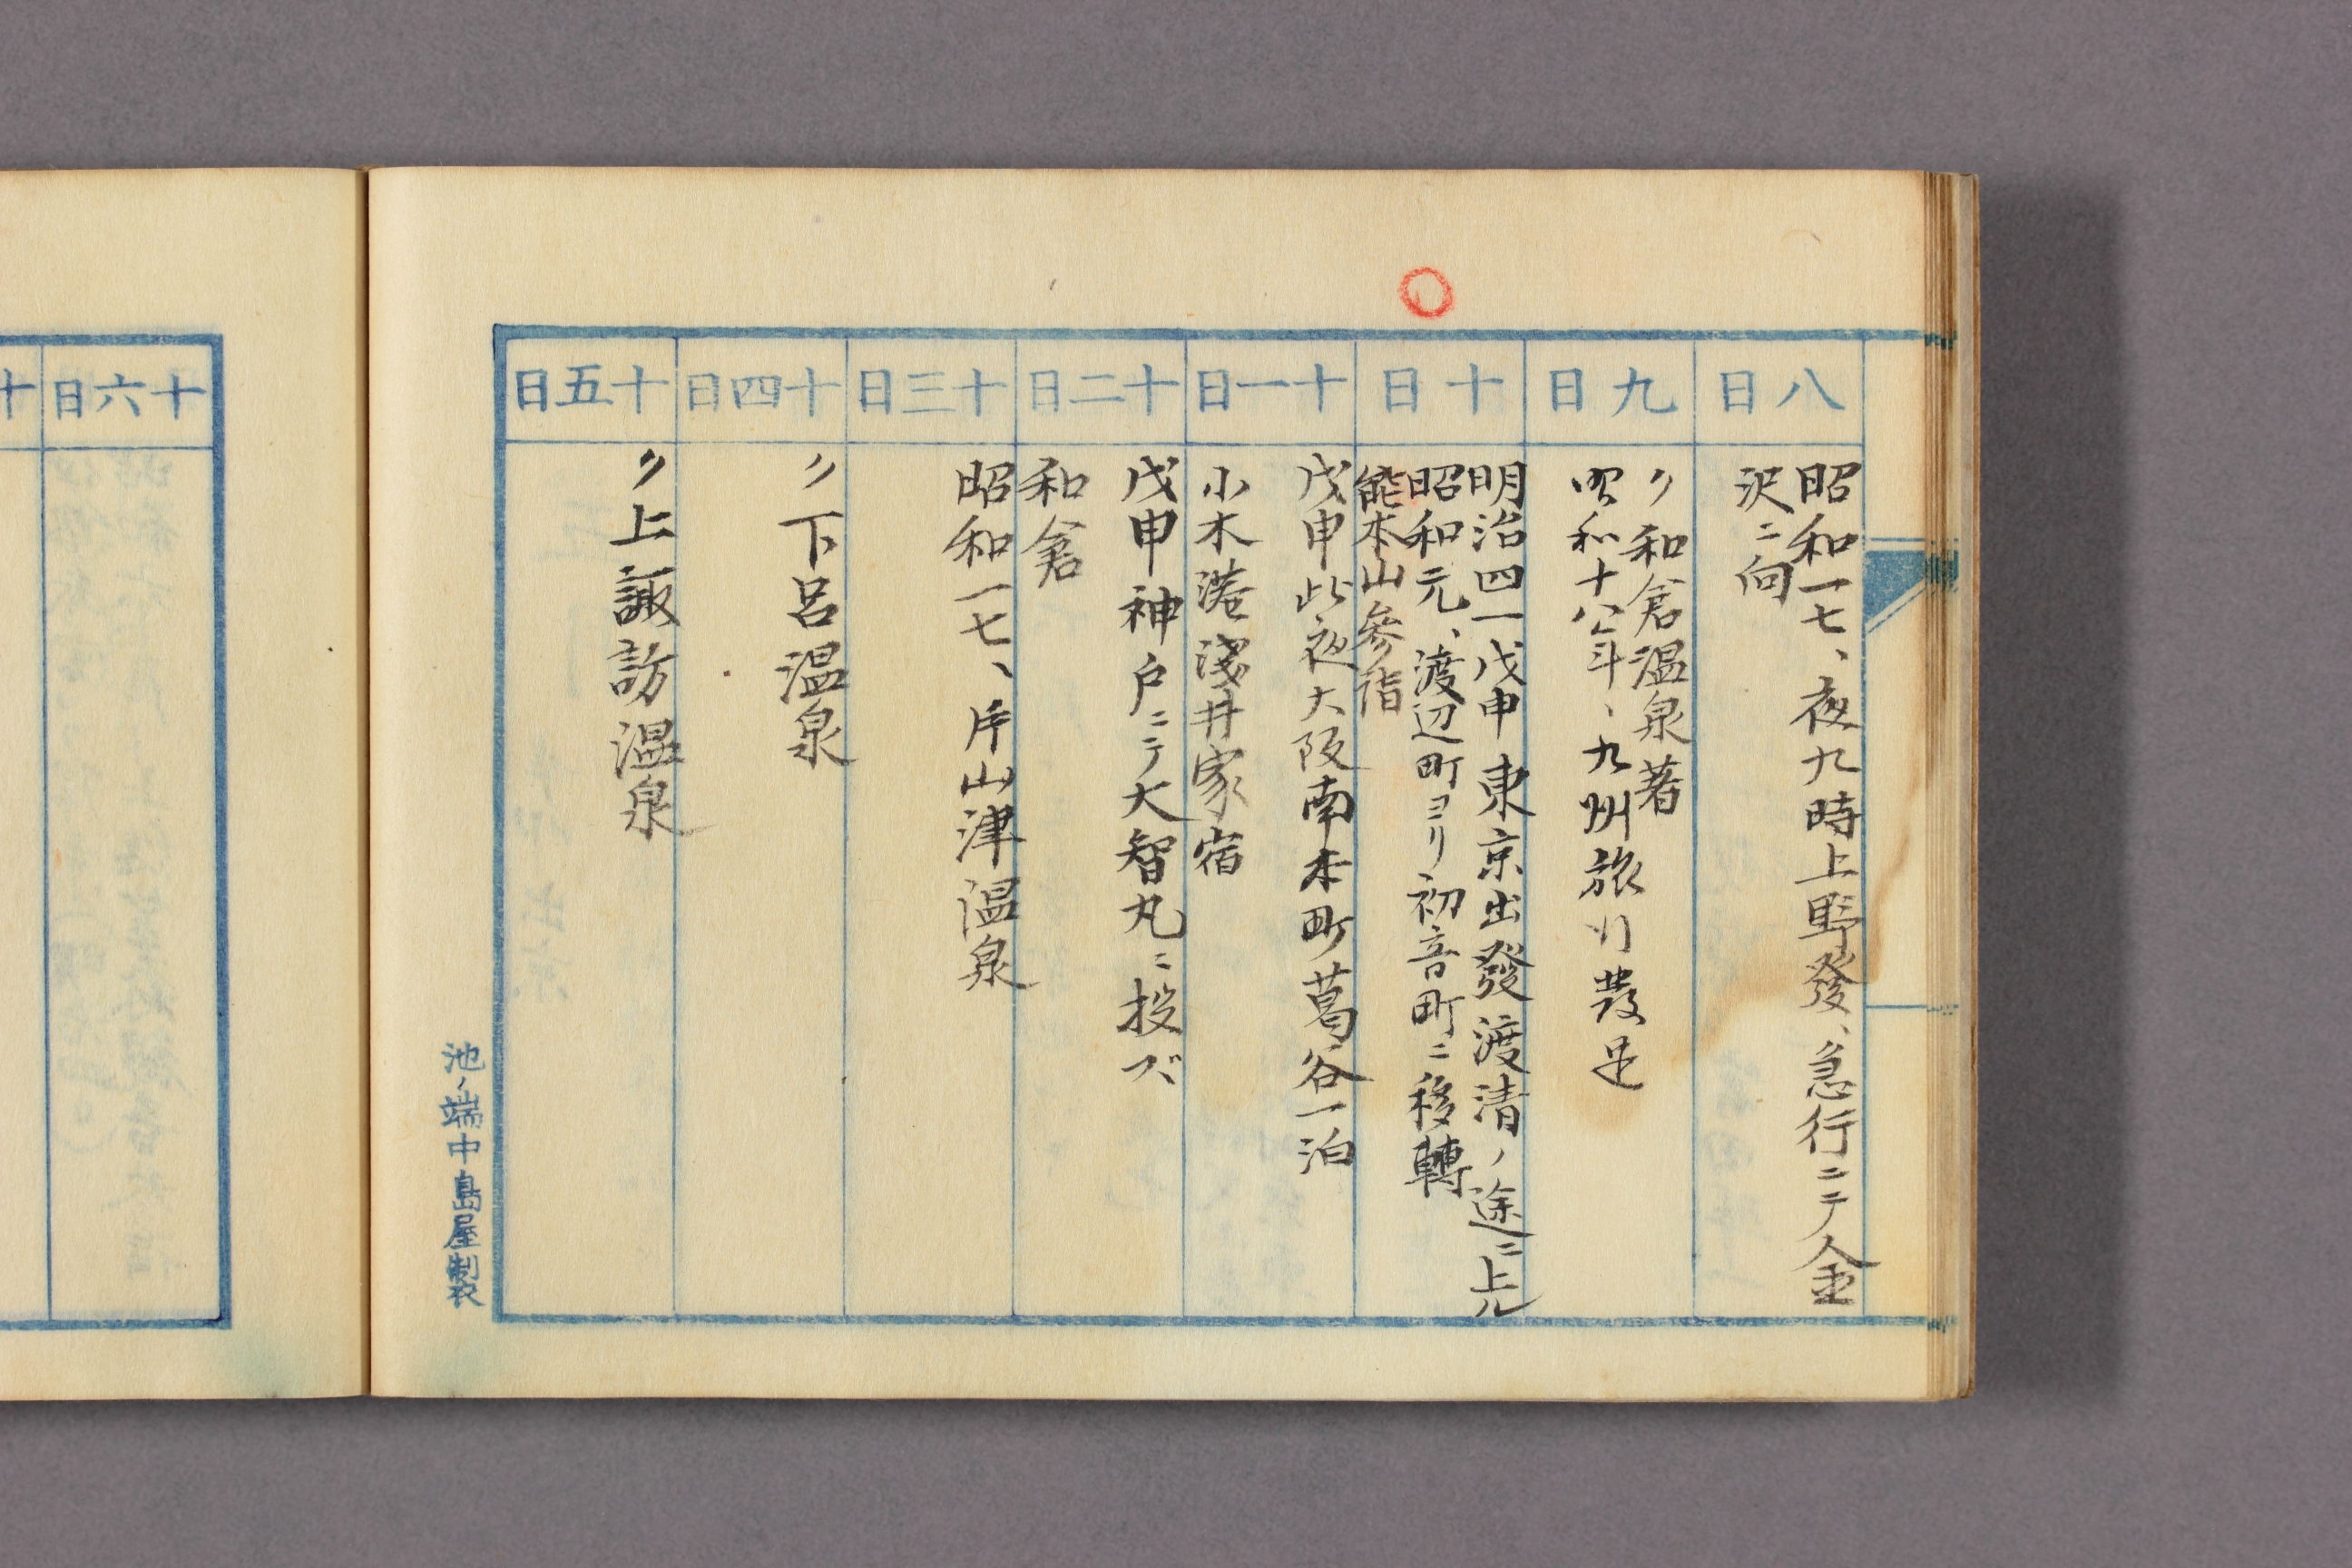 八日
昭和一七、夜九時上野發、急行ニテ金
沢ニ向
九日
〃和倉温泉著
昭和十八年、九州旅行發足
十日
明治四一戊申東京出發渡清ノ途ニ上ル
昭和元、渡辺町ヨリ初音町ニ移轉
能本山參詣
十一日
戊申此夜大阪南本町葛谷一泊
小木港淺井家宿
十二日
戊申神戸ニテ大智丸ニ投ズ
和倉
十三日
昭和一七、片山津温泉
十四日
〃下呂温泉
十五日
〃上諏訪温泉
池ノ端中島屋製
十六日
十